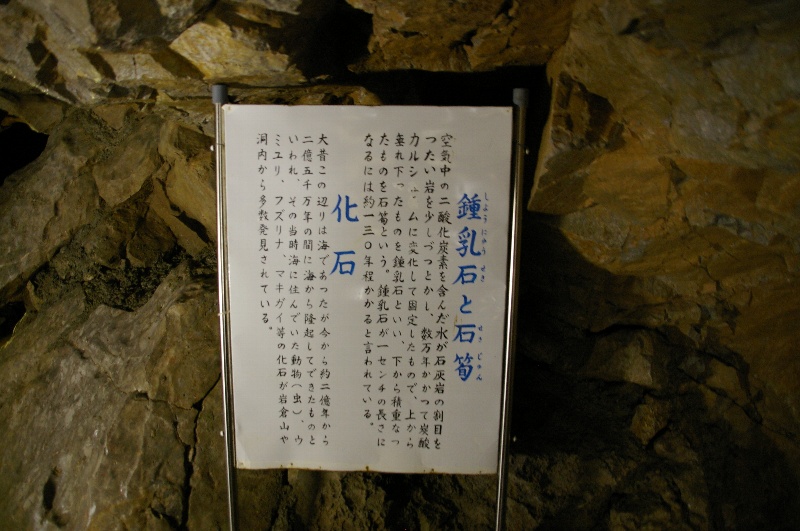 鍾乳石と石筍
しょうにゅうせき せきじゅん
空気中の二酸化炭素を含んだ水が石灰岩の割目を
つたい岩を少しづつとかし、数万年かかつて炭酸
カルシュームに変化して固定したもので、上から
垂れ下ったものを鍾乳石といい、下から積重なっ
たものを石筍という。鍾乳石が一センチの長さに
なるには約一三〇年程かかると言われている。
化石
大昔この辺りは海であつたが今から約二億年から
二億五千万年の間に海から隆起してできたものと
いわれ、その当時海に住んでいた動物(虫)、ウ
ミユリ、フズリナ、マキガイ等の化石が岩倉山や
洞内から多数発見されている。